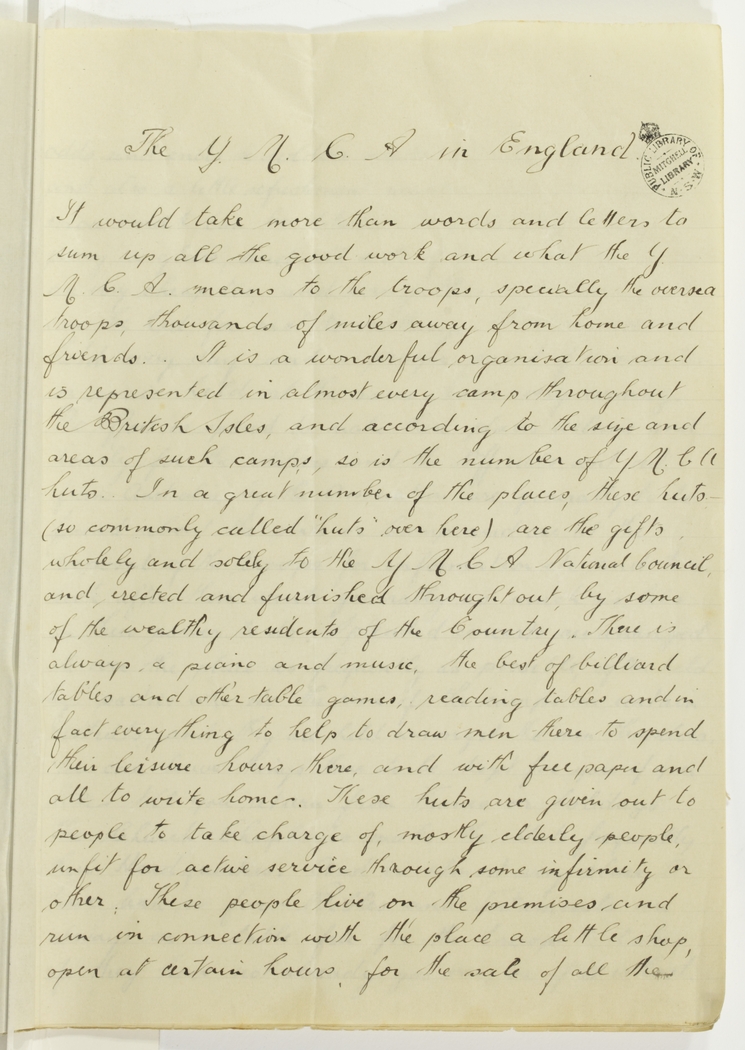 The Y. M. C. A in England
PUBLIC LIBRARY OF
MITCHELL
LIBRARY
N. S. W.
It would take more than words and letters to
sum up all the good work and what the Y
M. C. A. means to the troops, specially the oversea
troops, thousands of miles away from home and
friends. . It is a wonderful organisation and
is represented in almost every camp throughout
the British Isles, and according to the size and
areas of such camps, so is the number of Y M. C A
huts. . In a great number of the places, these huts -
(so commonly called "huts" over here) are the gifts
wholely and solely to the Y M C A National Council,
and erected and furnished throught out, by some
of the wealthy residents of the Country. There is
always, a piano and music, the best of billiard
tables and other table games, reading tables and in
fact everything to help to draw men there to spend
their leisure hours there, and with free paper and
all to write home -. These huts are given out to
people to take charge of, mostly elderly people,
unfit for active service through some infirmity or
other. These people live on the premises and
run in connection with the place a little shop,
open at certain hours, for the sale of all the